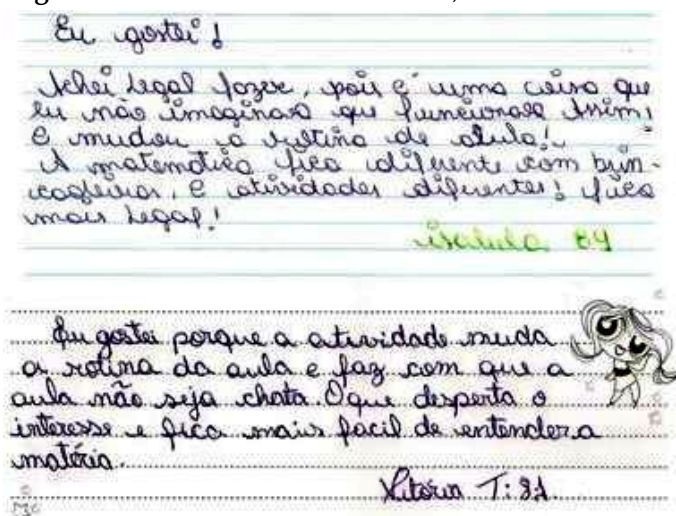 Eu gostei!
Achei legal fazer, pois é uma coisa que
eu não imaginava que funcionasse assim!
E mudou a rotina de aula!
A matemática fica diferente com brin-
cadeiras, e atividades diferentes! fica
mais legal!
84
Eu gostei porque a atividade muda
a rotina da aula e faz com que a
aula não seja chata. O que desperta o
interesse e fica mais facil de entender a
matéria.
Vitória T: 81